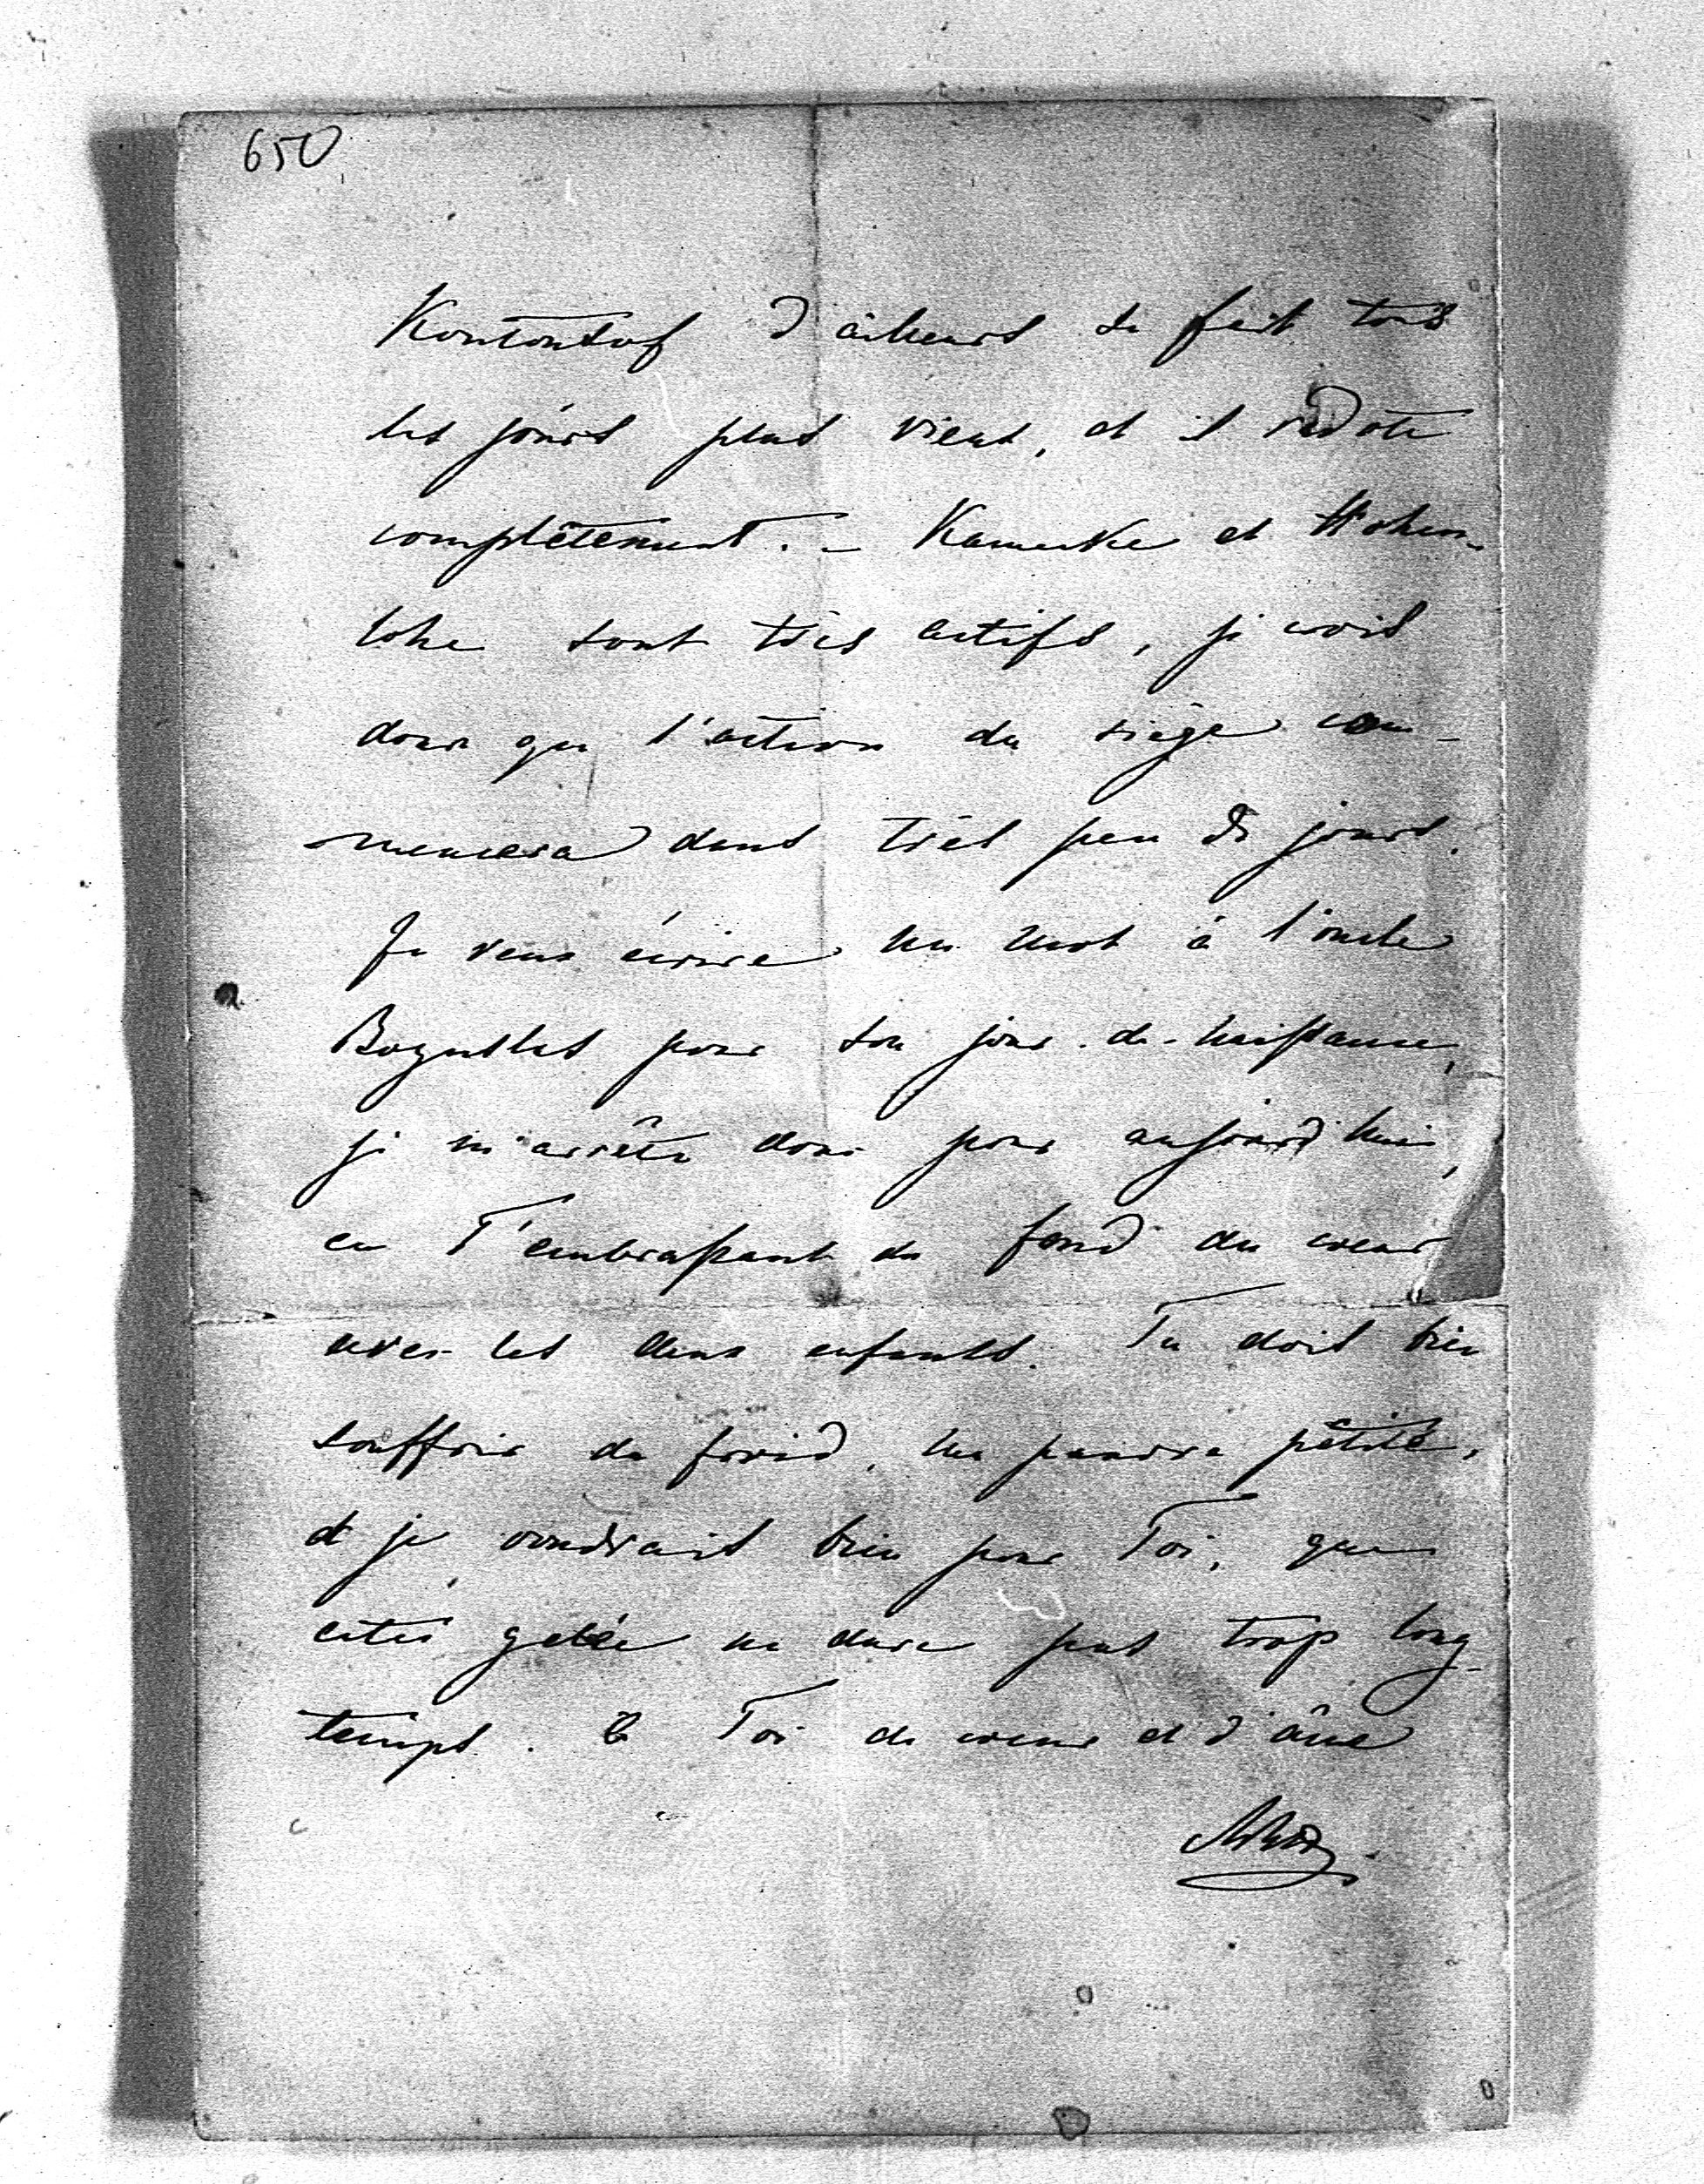 650
Koutousof d'ailleurs se fait tous
les jours plus vieux, et il radote
complêtement. – Kameke et Hohen-
lohe sont très actifs, je crois
donc que l'action du siège com-
mencera dans très peu de jours.
Je veux écrire un mot à l'oncle
Boguslas pour son jour-de-naissance,
je m'arrête donc pour aujourd'hui,
en T'embrassant du fond du coeur
avec les deux enfants. Tu dois bien
souffrir du froid, ma pauvre petite,
et je voudrais bien pour Toi, que
cette gelée ne dure pas trop long-
temps. à Toi de coeur et d'âme